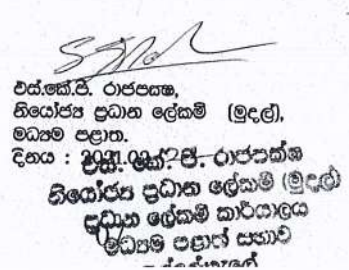 එස්.කේ.පී. රාජපක්ෂ,
නියෝජ්‍ය ප්‍රධාන ලේකම් (මුදල්),
මධ්‍යම පළාත.
දිනය :
එස්. කේ. පී. රාජපක්ෂ
නියෝජ්‍ය ප්‍රධාන ලේකම් (මුදල්)
ප්‍රධාන ලේකම් කාර්යාලය
මධ්‍යම පළාත් සභාව